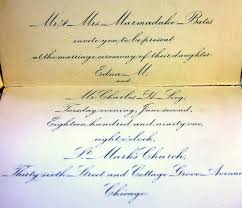 Mr. & Mrs. Marmaduke Bates
invite you to be present
at the marriage ceremony of their daughter
Edna M.
and
Mr. Charles St.
Tuesday evening, June second,
Eighteen hundred and ninety one,
eight o'clock,
St. Mark's Church,
Thirty sixth Street and Cottage Grove Avenue
Chicago.